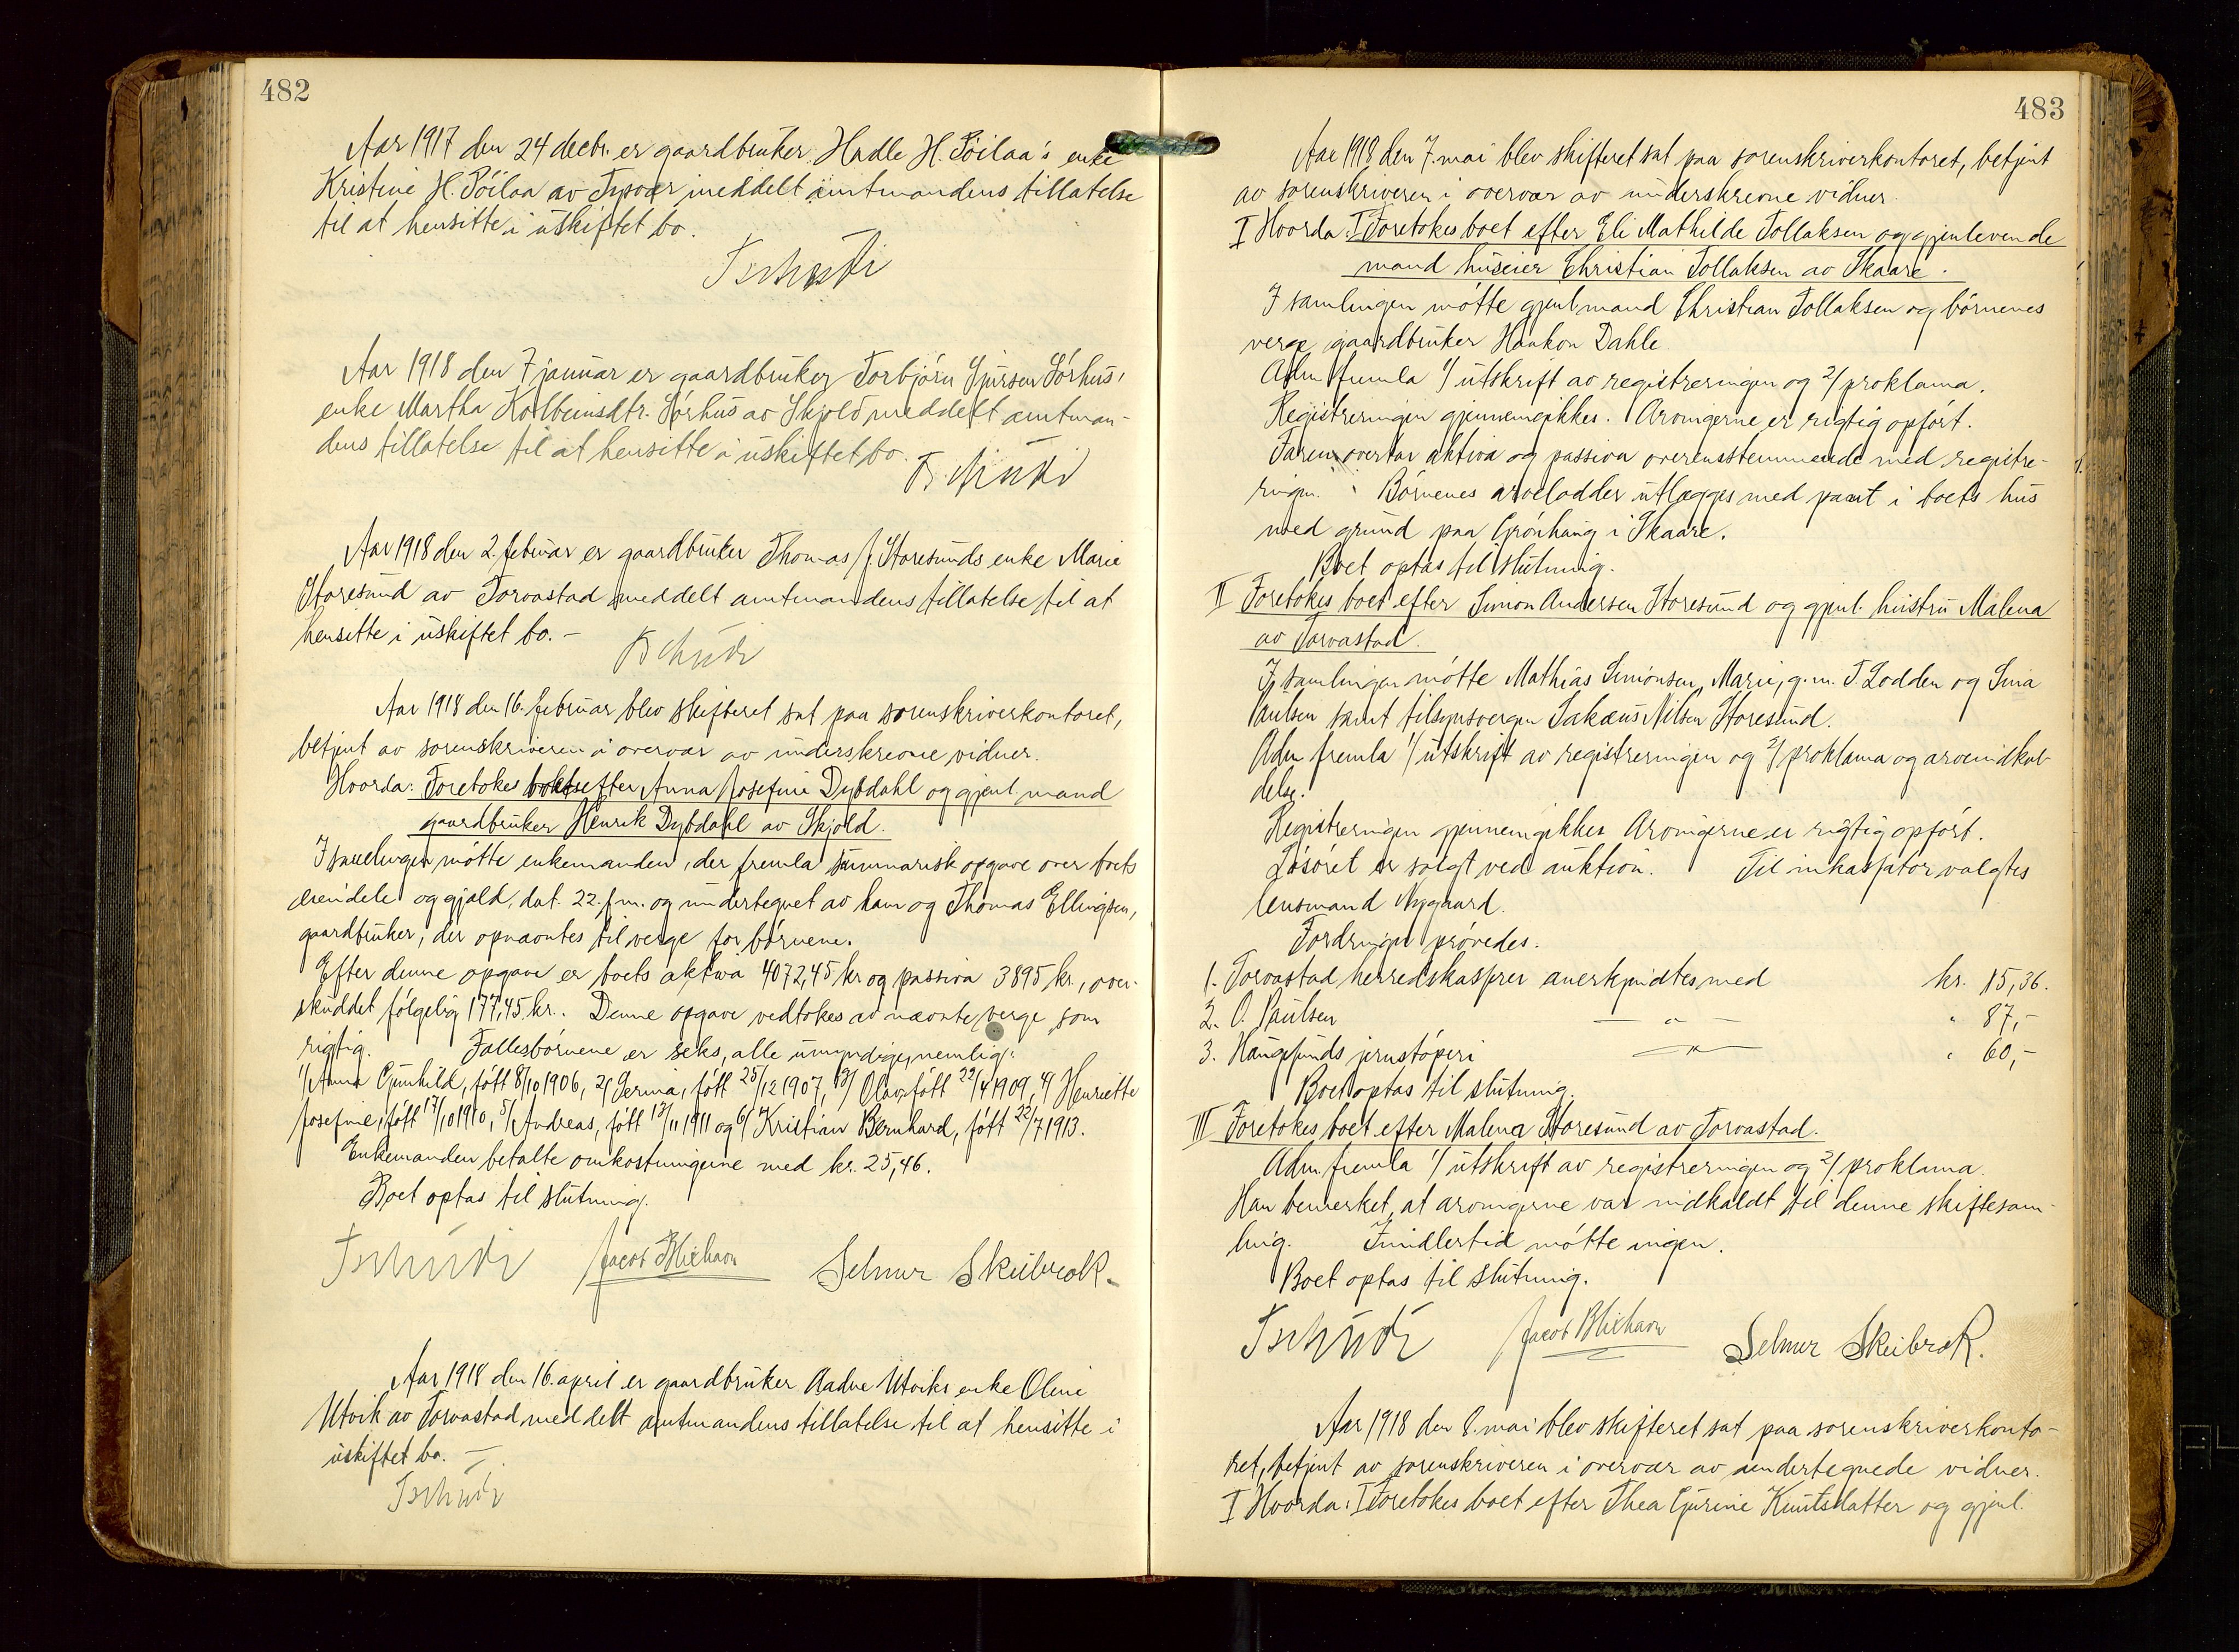 482
Aar 1917 den 24 decbr. er gaardbruker Hadle H. Pöilaa's enke
Kristine H. Pöilaa av Tysvær meddelt amtmandens tillatelse
til at hensitte i uskiftet bo.
Tschudi
Aar 1918 den 7 januar er gaardbruker Torbjörn Sjursen Sörhus'
enke Martha Kolbeinsdtr. Sörhus av Skjold meddelt amtman-
dens tillatelse til at hensitte i uskiftet bo.
Tschudi
Aar 1918 den 2. februar er gaardbruker Thomas J. Storesunds enke Marie
Storesund av Torvastad meddelt amtmandens tillatelse til at
hensitte i uskiftet bo. –
Tschudi
Aar 1918 den 16. februar blev skifteret sat paa sorenskriverkontoret,
betjent av sorenskriveren i overvær av underskrevne vidner.
Hvorda: Foretokes boet efter Anna Josefine Dybdahl og gjenl. mand
gaardbruker Henrik Dybdahl av Skjold.
I samlingen mötte enkemanden, der fremla summarisk opgave over boets
eiendele og gjæld, dat. 22. f.m. og undertegnet av ham og Thomas Ellingsen,
gaardbruker, der opnævntes til verge for börnene.
Efter denne opgave er boets aktiva 4072,45 kr og passiva 3895 kr., over-
skuddet fölgelig 177,45 kr.. Denne opgave vedtokes av nævnte verge som
rigtig. Fællesbörnene er seks, alle umyndige, nemlig:
1/ Anna Gunhild, fött 8/10 1906, 2/ Jerina, fött 25/12 1907, 3/ Olav, fött 22/4 1909, 4/ Henriette
Josefine, fött 17/10 1910, 5/ Andreas, fött 13/11 1911 og 6/ Kristian Bernhard, fött 22/7 1913.
Enkemanden betalte omkostningerne med kr. 25,46.
Boet optas til slutning.
Tschudi Jacob Blixhavn Selmer Skeibrok.
Aar 1918 den 16. april er gaardbruker Aadne Utviks enke Oline
Utvik av Torvastad meddelt amtmandens tillatelse til at hensitte i
uskiftet bo. –
Tschudi
483
Aar 1918 den 7. mai blev skifteret sat paa sorenskriverkontoret, betjent
av sorenskriveren i overvær av underskrevne vidner.
I Hvorda: I Foretokes boet efter Eli Mathilde Tollaksen og gjenlevende
mand huseier Christian Tollaksen av Skaare.
I samlingen mötte gjenl. mand Christian Tollaksen og börnenes
verge gaardbruker Haakon Dahle.
Adm. fremla 1/ utskrift av registreringen og 2/ proklama.
Registreringen gjennemgikkes. Arvingerne er rigtig opfört.
Faren overtar aktiva og passiva overensstemmende med registre-
ringen. Börnenes arvelodder utlægges med pant i boets hus
med grund paa Grönhaug i Skaare.
Boet optas til slutning.
II Foretokes boet efter Simon Andersen Storesund og gjenl. hustru Malena
av Torvastad.
I samlingen mötte Mathias Simonsen, Marie, g. m. T. Lodden og Sina
Paulsen samt tilsynsvergen Sakæus Nilsen Storesund.
Adm. fremla 1/ utskrift av registreringen og 2/ proklama og arveindkal-
delse.
Registreringen gjennemgikkes. Arvingerne er rigtig opfört.
Lösöret er solgt ved auktion. Til inkassator valgtes
lensmand Nygaard.
Fordringer prövedes.
1. Torvastad herredskasserer anerkjendtes med kr. 15,36.
2. O. Paulsen — " — " 87,-
3. Haugesunds jernstöperi — " — " 60,-
Boet optas til slutning.
III Foretokes boet efter Malena Storesund av Torvastad.
Adm. fremla 1/ utskrift av registreringen og 2/ proklama.
Han bemerket, at arvingerne var indkaldt til denne skiftesam-
ling. Imidlertid mötte ingen.
Boet optas til slutning.
Tschudi Jacob Blixhavn Selmer Skeibrok.
Aar 1918 den 8. mai blev skifteret sat paa sorenskriverkonto-
ret, betjent av sorenskriveren i overvær av undertegnede vidner.
I Hvorda: I Foretokes boet efter Thea Gurine Knutsdatter og gjenl.